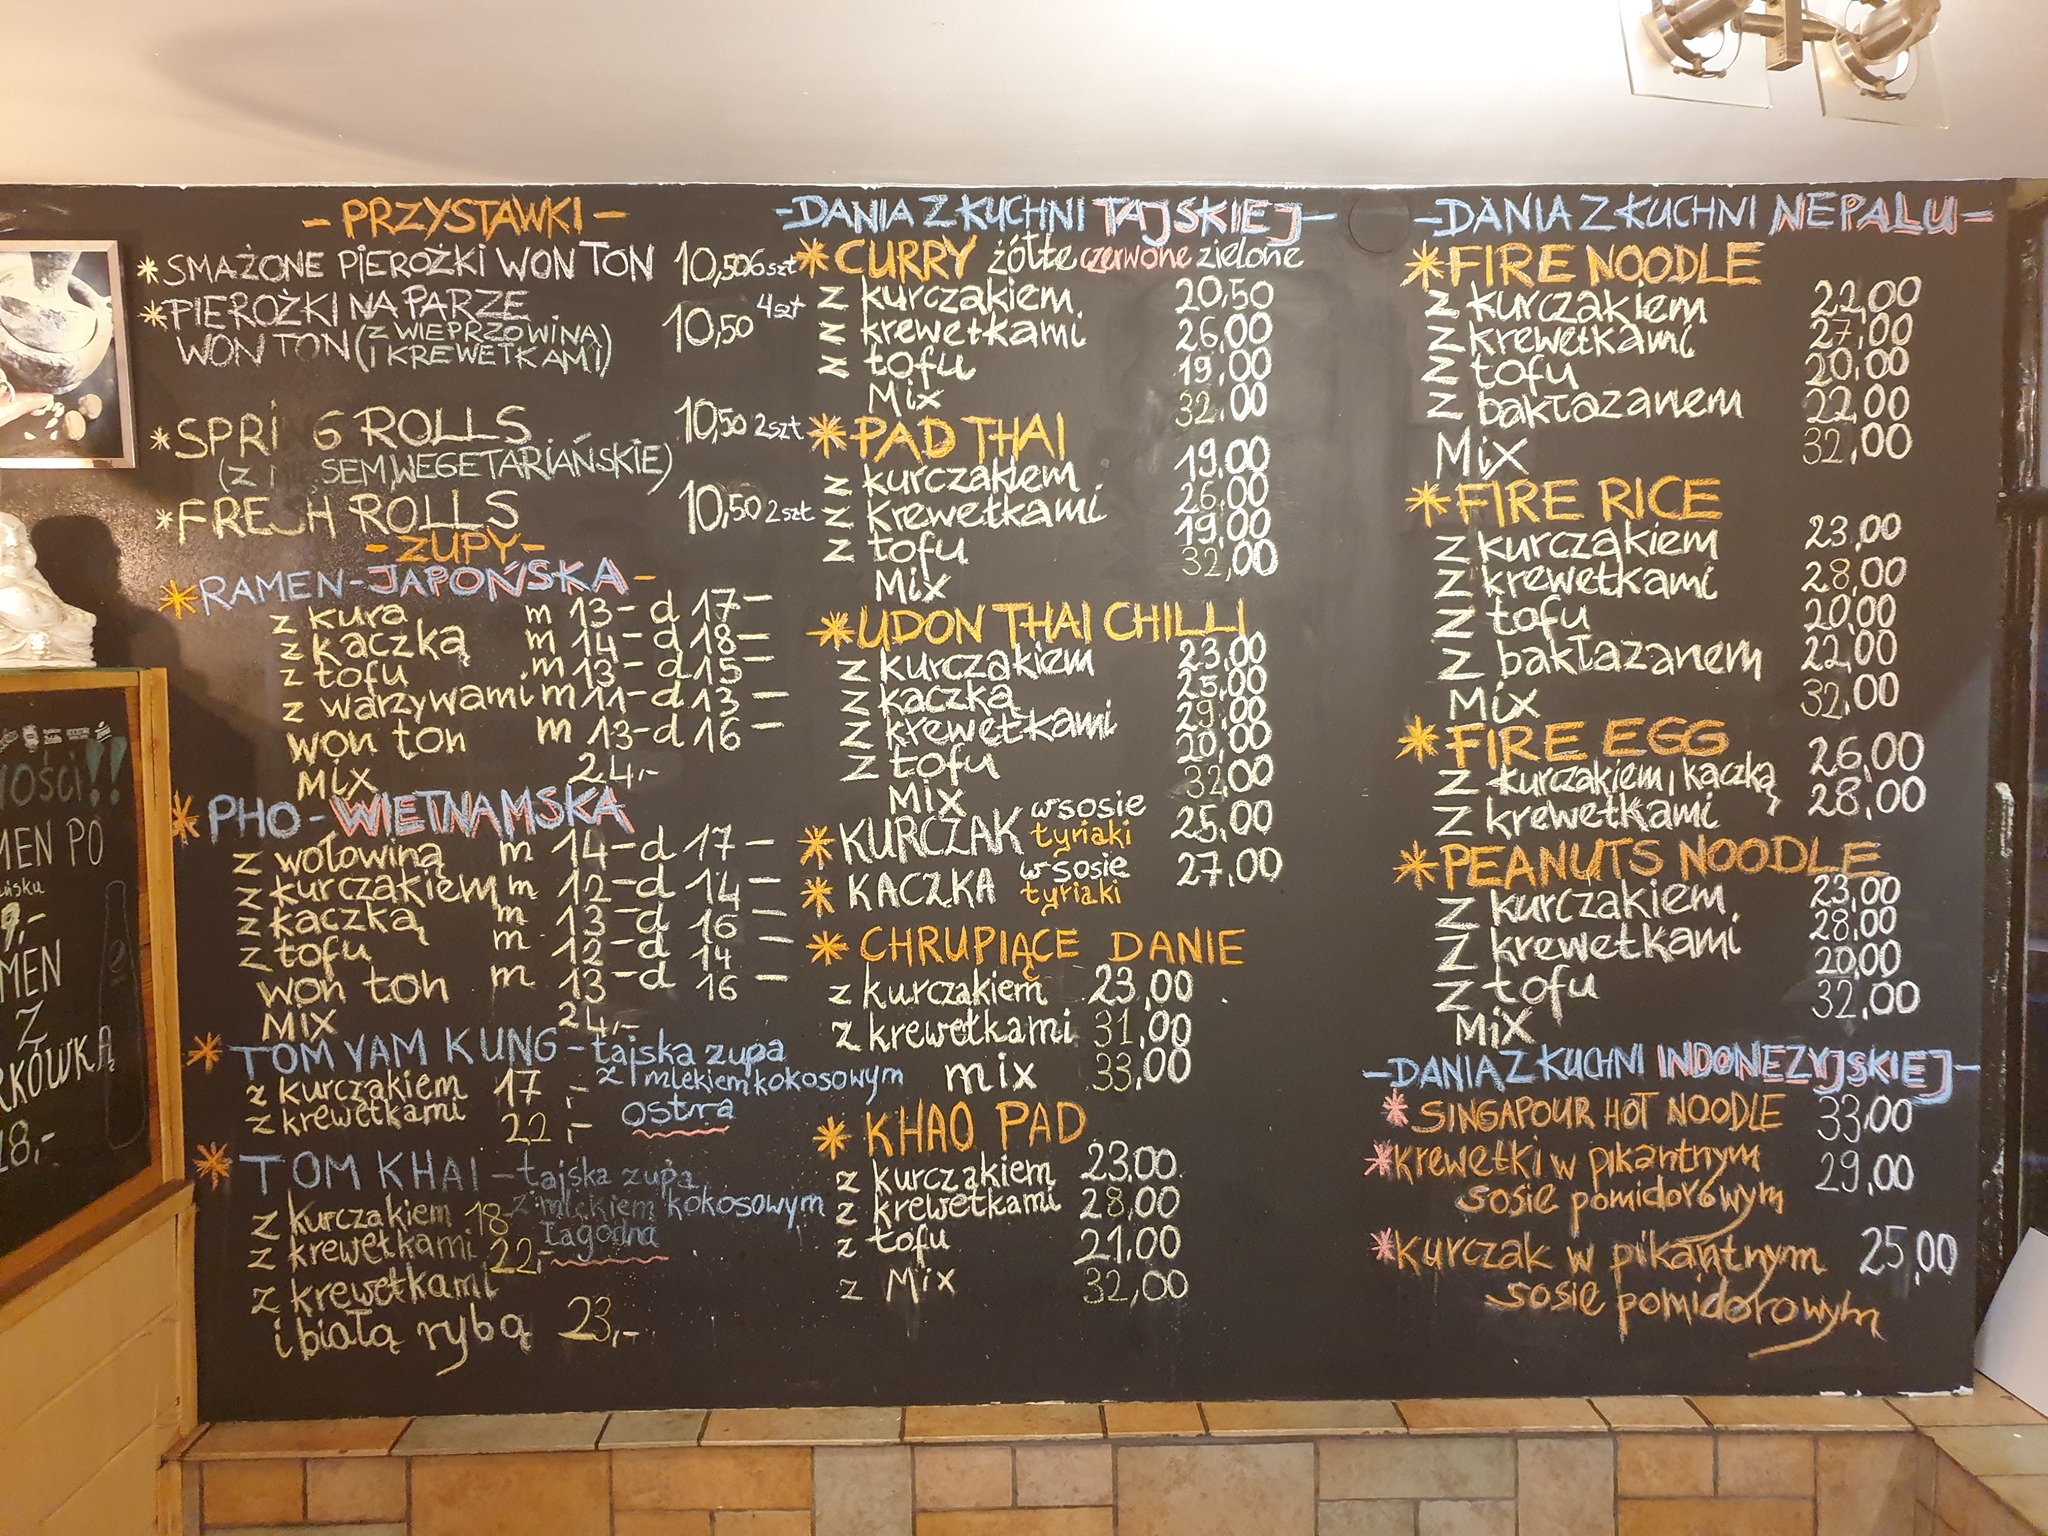 - PRZYSTAWKI -
* SMAŻONE PIEROŻKI WON TON 10,50 6szt
* PIEROŻKI NA PARZE 4szt
WON TON (Z WIEPRZOWINĄ 10,50
I KREWETKAMI)
* SPRI G ROLLS 10,50 2szt
(Z SEM, WEGETARIAŃSKIE)
* FRESH ROLLS 10,50 2szt
- ZUPY -
* RAMEN - JAPOŃSKA -
z kurą m 13- d 17-
z kaczką m 14- d 18-
z tofu m 13- d 15-
z warzywami m 11- d 13-
won ton m 13- d 16-
Mix 24,-
* PHO - WIETNAMSKA
z wołowiną m 14- d 17-
z kurczakiem m 12- d 14-
z kaczką m 13- d 16-
z tofu m 12- d 14-
won ton m 13- d 16-
Mix 24,-
* TOM YAM KUNG - tajska zupa
z mlekiem kokosowym
z kurczakiem 17,-
z krewetkami 22,-
ostra
* TOM KHAI - tajska zupa
z mlekiem kokosowym
z kurczakiem 18
łagodna
z krewetkami 22,-
z krewetkami
i białą rybą 23,-
- DANIA Z KUCHNI TAJSKIEJ -
* CURRY żółte czerwone zielone
z kurczakiem 20,50
z krewetkami 26,00
z tofu 19,00
Mix 32,00
* PAD THAI
z kurczakiem 19,00
z krewetkami 26,00
z tofu 19,00
Mix 32,00
* UDON THAI CHILLI
z kurczakiem 23,00
z kaczką 25,00
z krewetkami 29,00
z tofu 20,00
Mix 32,00
* KURCZAK w sosie tyriaki 25,00
* KACZKA w sosie tyriaki 27,00
* CHRUPIĄCE DANIE
z kurczakiem 23,00
z krewetkami 31,00
mix 33,00
* KHAO PAD
z kurczakiem 23,00
z krewetkami 28,00
z tofu 21,00
z Mix 32,00
- DANIA Z KUCHNI NEPALU -
* FIRE NOODLE
z kurczakiem 22,00
z krewetkami 27,00
z tofu 20,00
z bakłazanem 22,00
Mix 32,00
* FIRE RICE
z kurczakiem 23,00
z krewetkami 28,00
z tofu 20,00
z bakłazanem 22,00
Mix 32,00
* FIRE EGG
z kurczakiem, kaczką 26,00
z krewetkami 28,00
* PEANUTS NOODLE
z kurczakiem 23,00
z krewetkami 28,00
z tofu 20,00
Mix 32,00
- DANIA Z KUCHNI INDONEZYJSKIEJ -
* SINGAPOUR HOT NOODLE 33,00
* krewetki w pikantnym 29,00
sosie pomidorowym
* Kurczak w pikantnym 25,00
sosie pomidorowym
OŚCI!!
MEN PO
MEN
Z
RKÓWKĄ
18,-